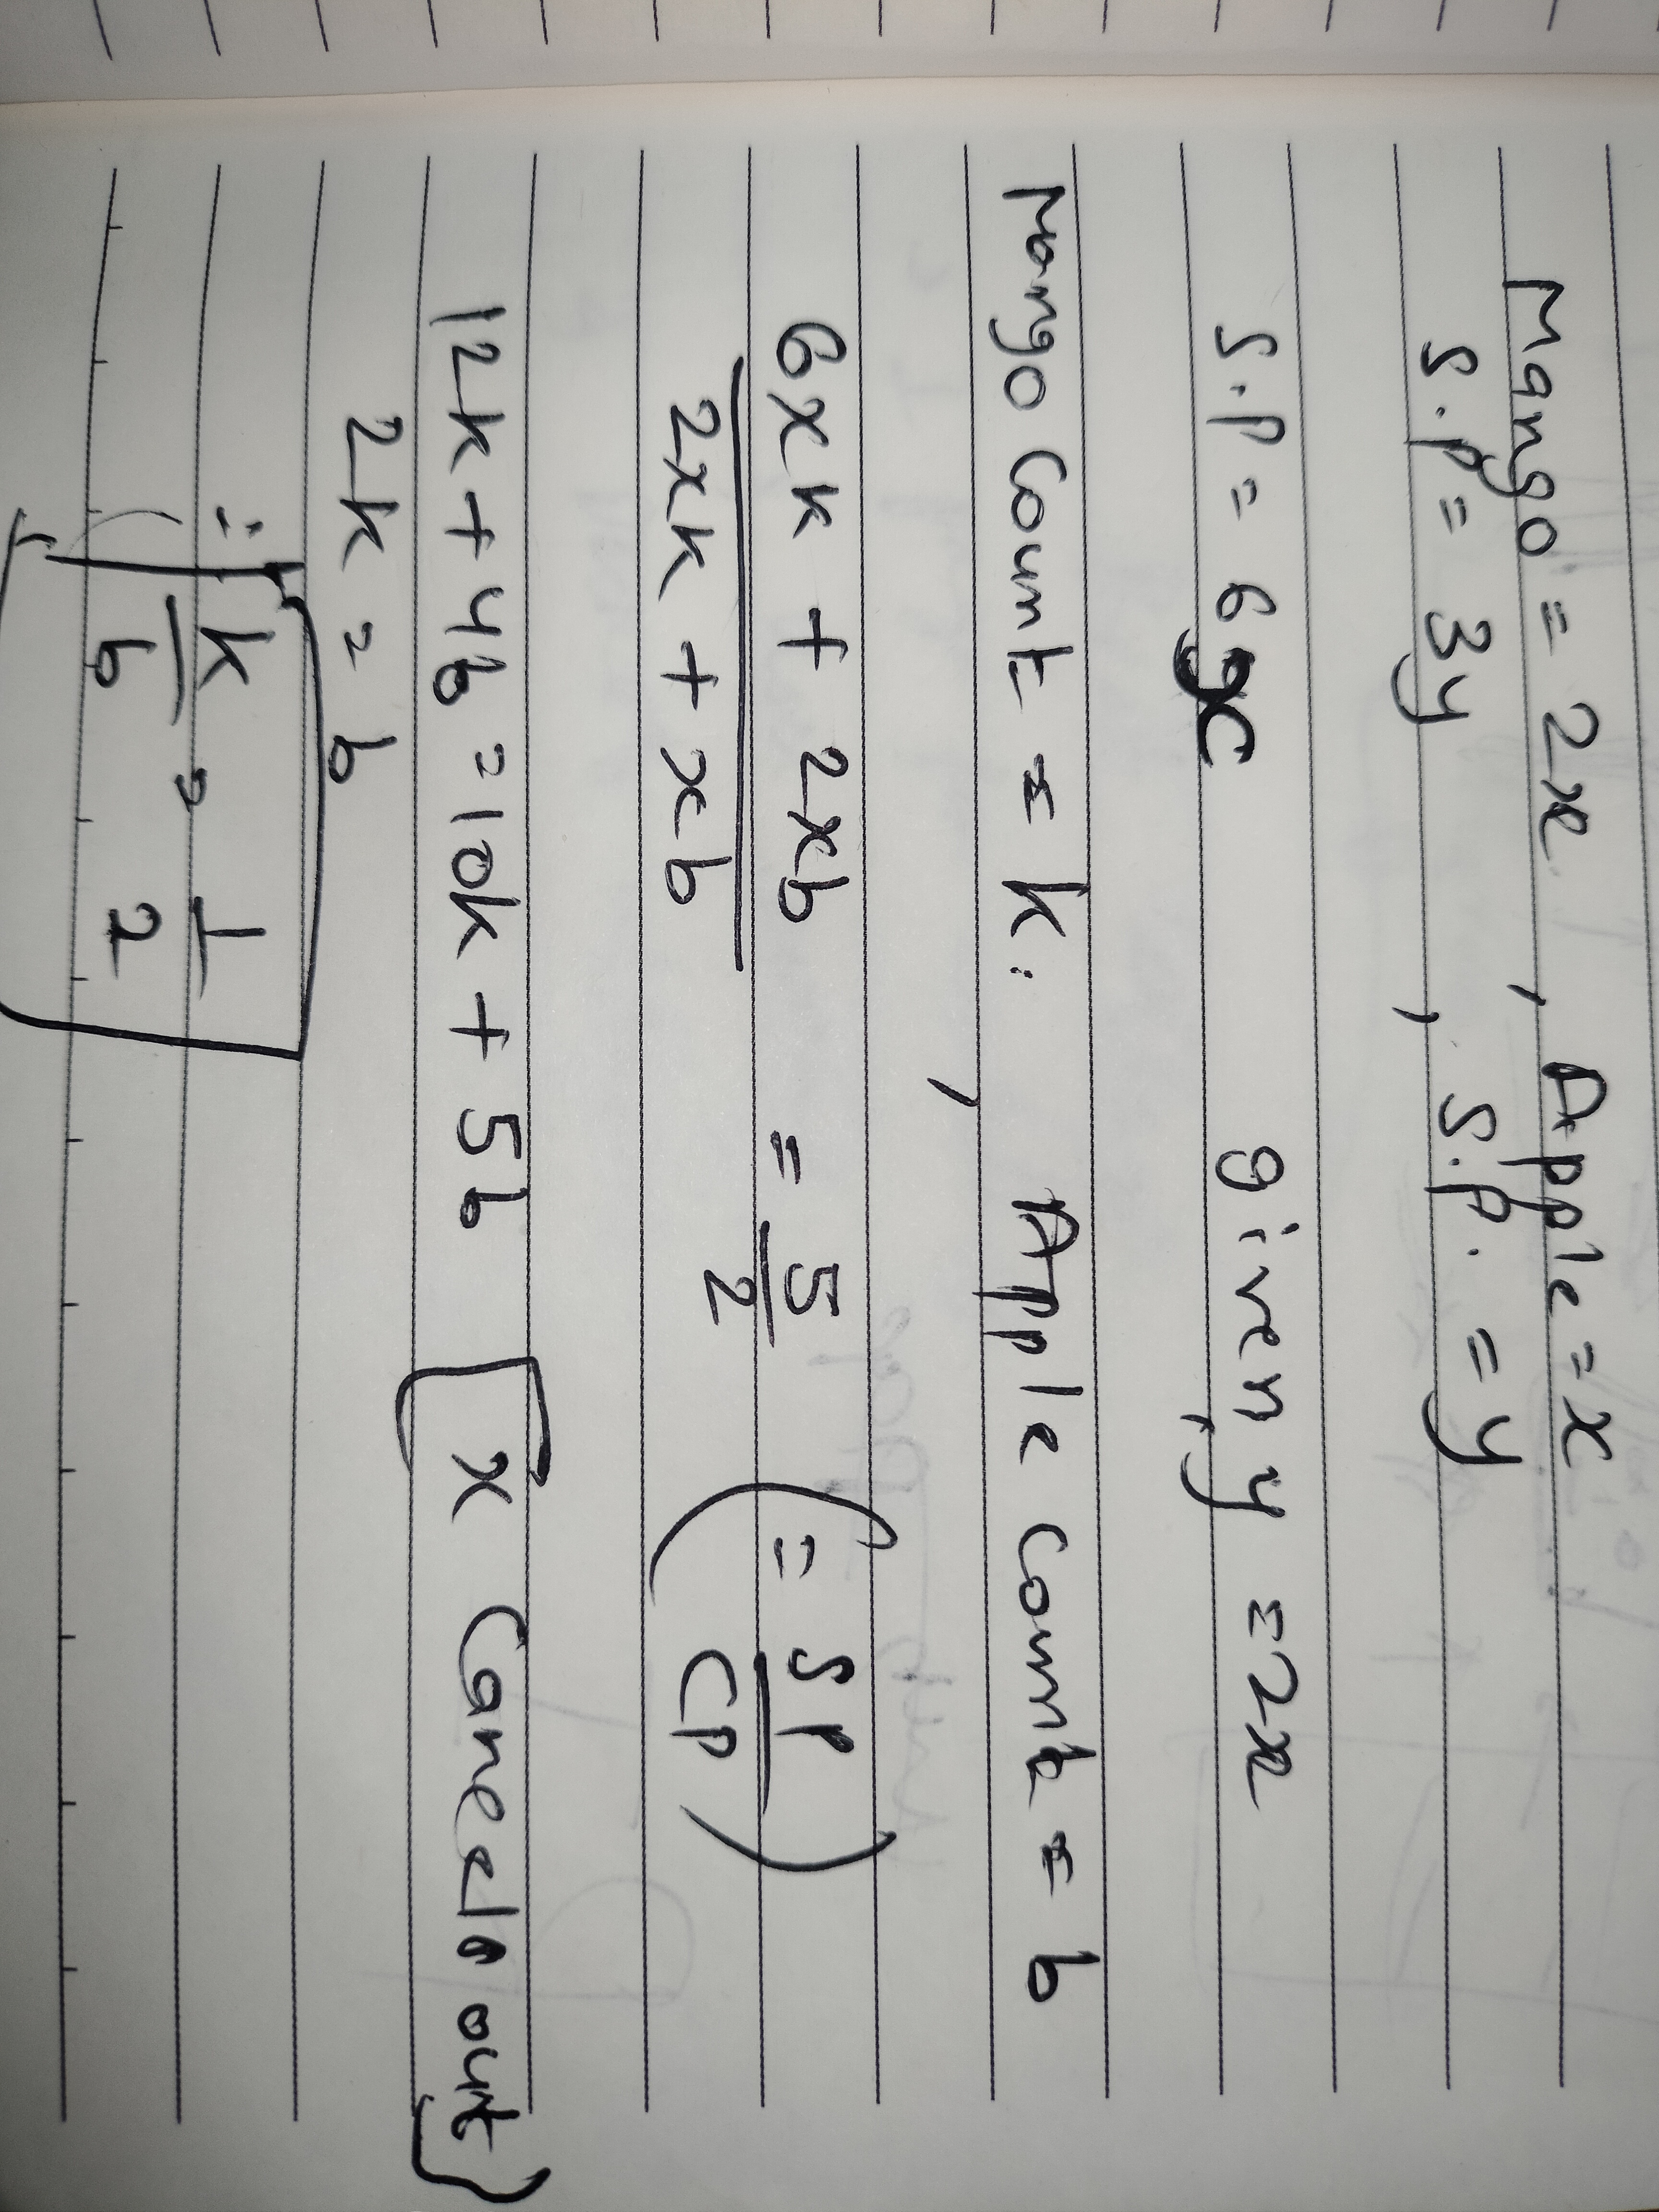 Mango = 2x , Apple = x
S.P = 3y , S.P. = y
S.P = 6x given, y = 2x
Mango Count = k. , Apple Count = b
6xk + 2xb / 2xk + xb = 5/2 (= SP/CP)
12k + 4b = 10k + 5b [x Cancels out}
2k = b
∴ k/b = 1/2